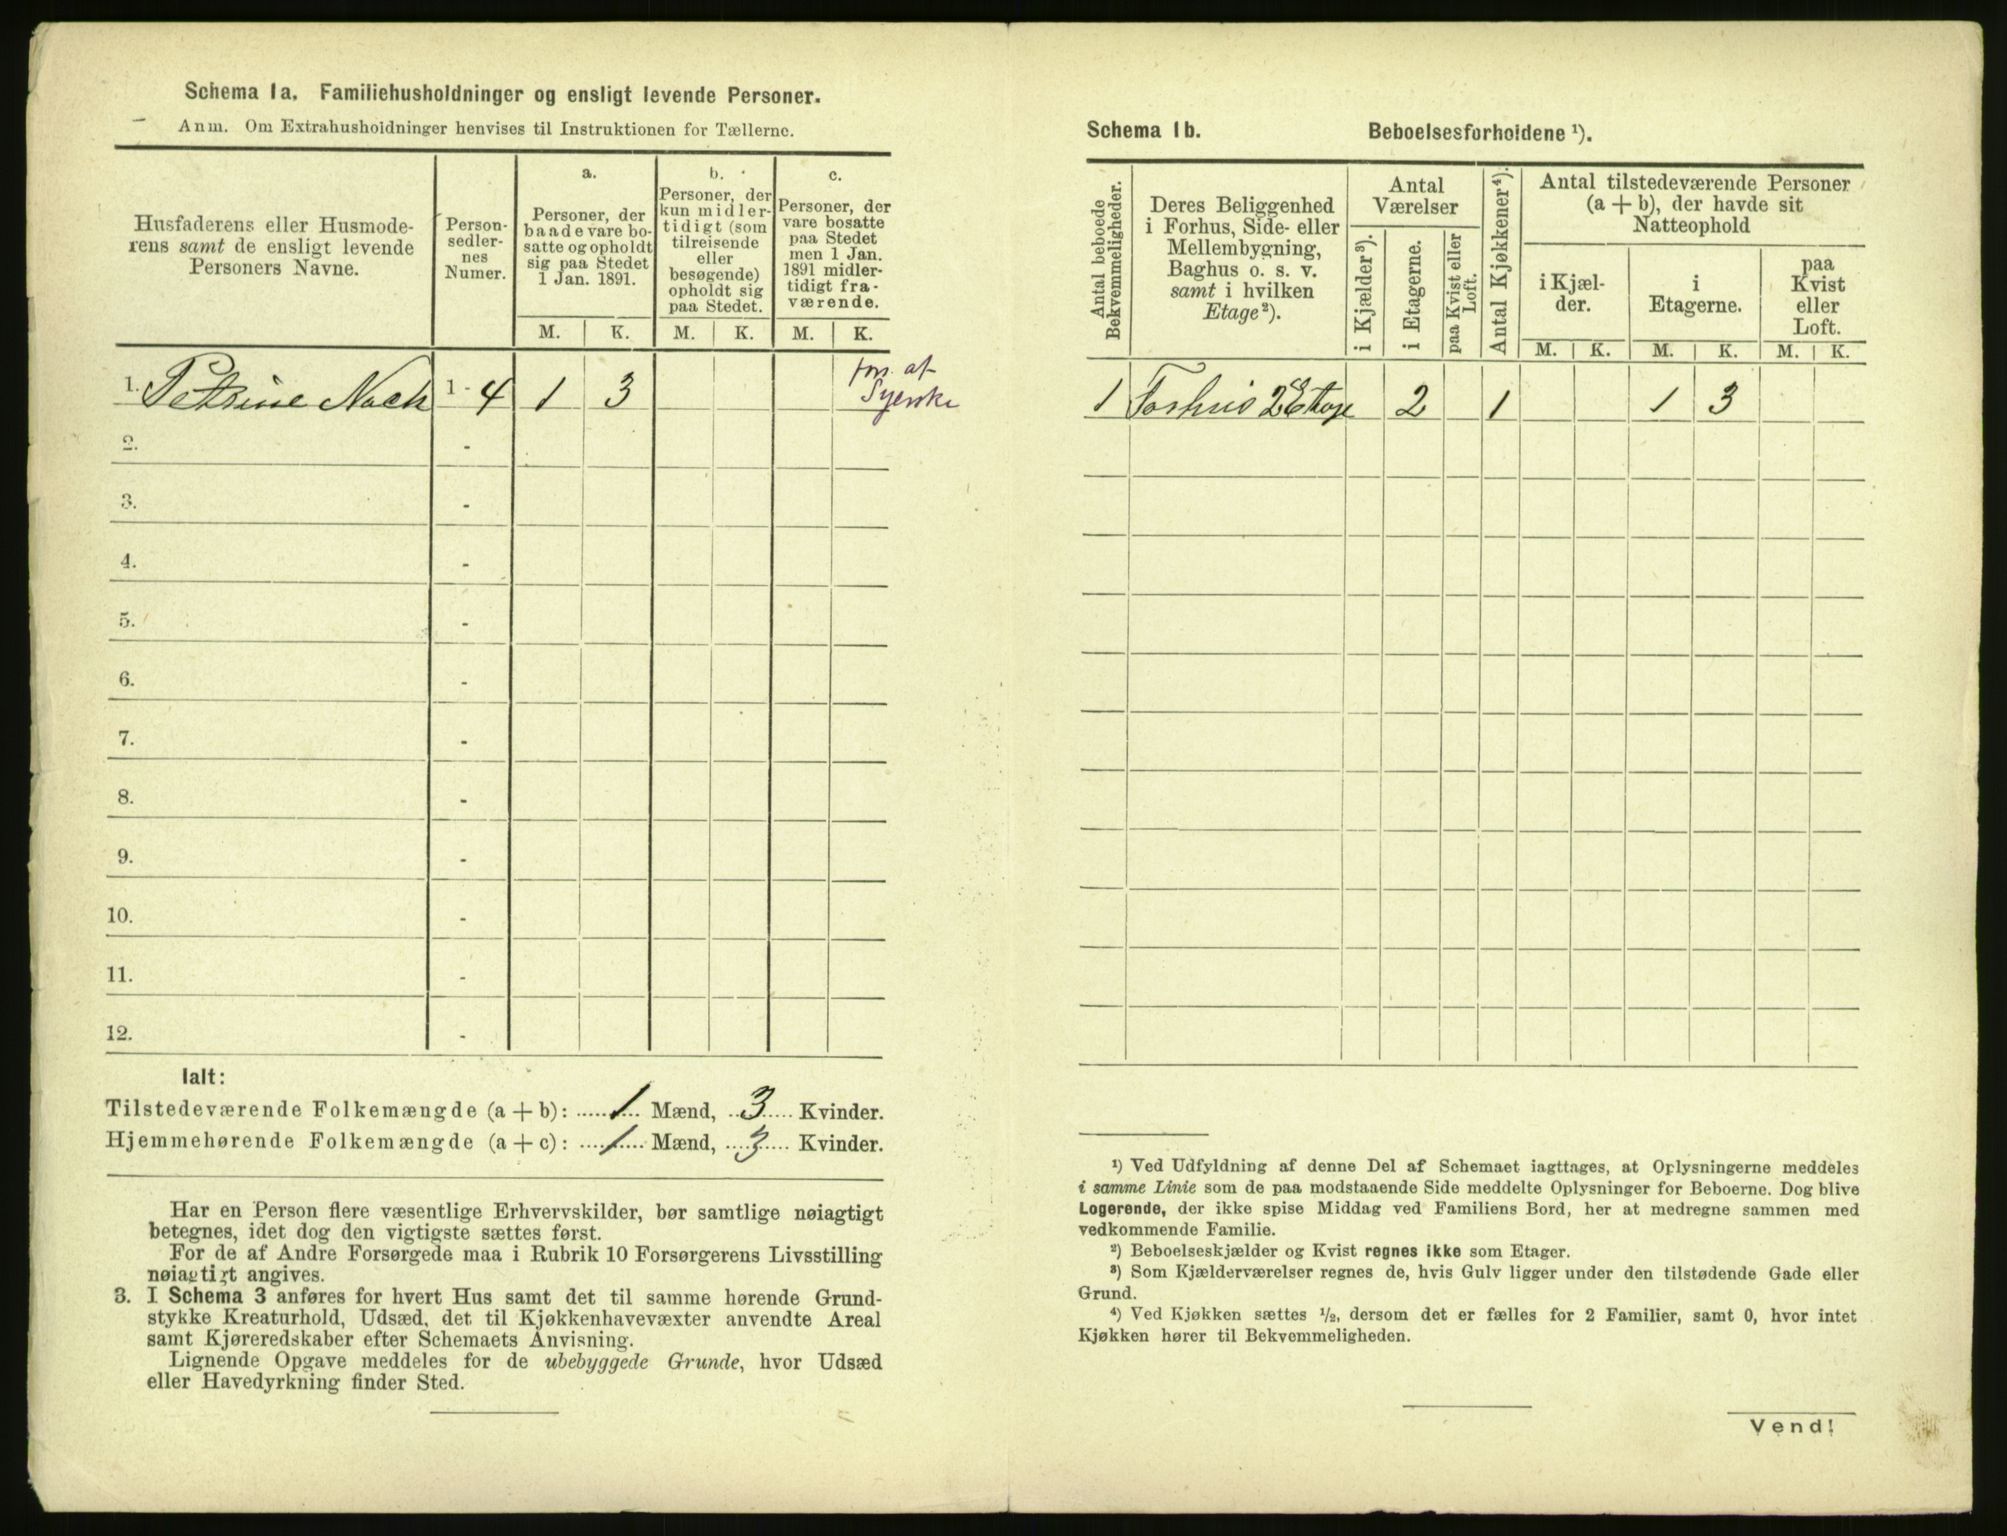 Schema 1a. Familiehusholdninger og ensligt levende Personer.
Anm. Om Extrahusholdninger henvises til Instruktionen for Tællerne.
Husfaderens eller Husmode-
rens samt de ensligt levende
Personers Navne.
Person-
sedler-
nes
Numer.
a.
Personer, der
baade vare bo-
satte og opholdt
sig paa Stedet
1 Jan. 1891.
b.
Personer, der
kun midler-
tidigt (som
tilreisende
eller
besøgende)
opholdt sig
paa Stedet.
c.
Personer, der
vare bosatte
paa Stedet
men 1 Jan.
1891 midler-
tidigt fra-
værende.
M. K. M. K. M. K.
1. Petrine 1 - 4 1 3
af
2. -
3. -
4. -
5. -
6. -
7. -
8. -
9. -
10. -
11. -
12. -
Ialt:
Tilstedeværende Folkemængde (a + b): 1 Mænd, 3 Kvinder.
Hjemmehørende Folkemængde (a + c): 1 Mænd, 3 Kvinder.
Har en Person flere væsentlige Erhvervskilder, bør samtlige nøiagtigt
betegnes, idet dog den vigtigste sættes først.
For de af Andre Forsørgede maa i Rubrik 10 Forsørgerens Livsstilling
nøiagtigt angives.
3. I Schema 3 anføres for hvert Hus samt det til samme hørende Grund-
stykke Kreaturhold, Udsæd, det til Kjøkkenhavevæxter anvendte Areal
samt Kjøreredskaber efter Schemaets Anvisning.
Lignende Opgave meddeles for de ubebyggede Grunde, hvor Udsæd
eller Havedyrkning finder Sted.
Schema 1b. Beboelsesforholdene ¹).
Antal beboede
Bekvemmeligheder.
Deres Beliggenhed
i Forhus, Side- eller
Mellembygning,
Baghus o. s. v.
samt i hvilken
Etage²).
Antal
Værelser
i Kjælder³).
i Etagerne.
paa Kvist eller
Loft.
Antal Kjøkkener⁴).
Antal tilstedeværende Personer
(a + b), der havde sit
Natteophold
i Kjæl-
der.
i
Etagerne.
paa
Kvist
eller
Loft.
M. K. M. K. M. K.
1 Forhus 2 Etage 2 1 1 3
¹) Ved Udfyldning af denne Del af Schemaet iagttages, at Oplysningerne meddeles
i samme Linie som de paa modstaaende Side meddelte Oplysninger for Beboerne. Dog blive
Logerende, der ikke spise Middag ved Familiens Bord, her at medregne sammen med
vedkommende Familie.
²) Beboelseskjælder og Kvist regnes ikke som Etager.
³) Som Kjælderværelser regnes de, hvis Gulv ligger under den tilstødende Gade eller
Grund.
⁴) Ved Kjøkken sættes ½, dersom det er fælles for 2 Familier, samt 0, hvor intet
Kjøkken hører til Bekvemmeligheden.
Vend!